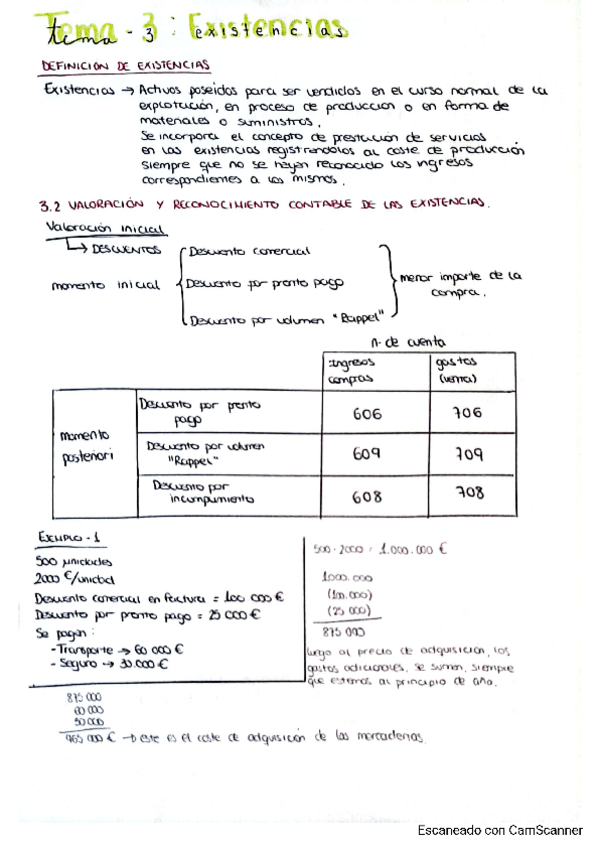 Tema - 3 : Existencias
DEFINICIÓN DE EXISTENCIAS
Existencias → Activos poseidos para ser vendidos en el curso normal de la
explotación, en proceso de produccion o en forma de
materiales o suministros.
Se incorpora el concepto de prestación de servicios
en las existencias registrandolos al coste de producción
siempre que no se hayan reconocido los ingresos
correspondientes a los mismos.
3.2 VALORACIÓN Y RECONOCIMIENTO CONTABLE DE LAS EXISTENCIAS.
Valoración inicial
↳ DESCUENTOS
Descuento comercial
momento inicial
Descuento por pronto pago
menor importe de la
compra.
Descuento por volumen "Rappel"
n. de cuenta
ingresos
compras
gastos
(venta)
momento
posteriori
Descuento por pronto
pago
606
706
Descuento por volumen
"Rappel"
609
709
Descuento por
incumplimiento
608
708
EJEMPLO - 1
500 unidades
2000 €/unidad
Descuento comercial en factura = 100 000 €
Descuento por pronto pago = 25 000 €
Se pagan:
- Transporte → 60 000 €
- Seguro → 30.000 €
500 · 2000 = 1.000.000 €
1000.000
(100.000)
(25 000)
875 000
luego al precio de adquisición, los
gastos adicionales, se suman, siempre
que estemos al principio de año.
875 000
60 000
30 000
965 000 € → este es el coste de adquisición de las mercaderias.
Escaneado con CamScanner